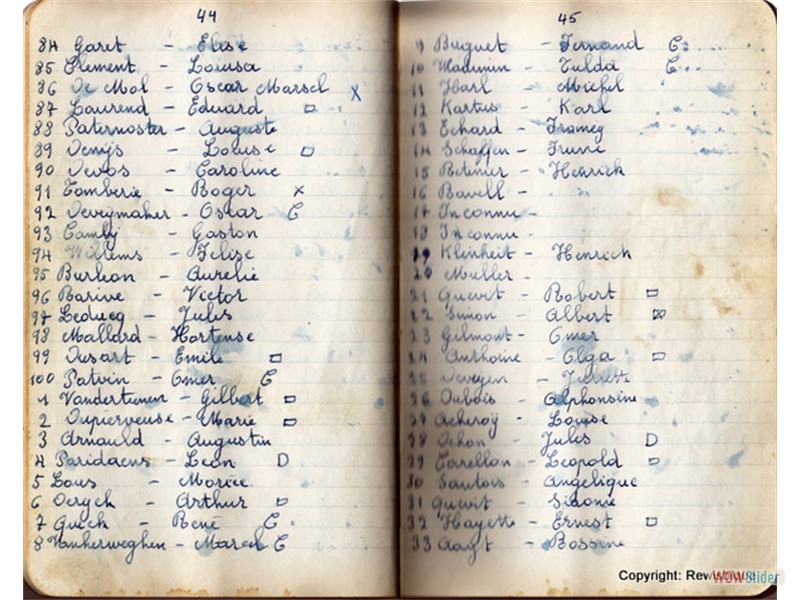 44
84 Garet - Elise
85 Clement - Louisa
86 De Mol - Oscar Marcel X
87 Laurend - Eduard
88 Paternoster - Auguste
89 Denijs - Louise
90 Devos - Caroline
91 Tomberie - Roger x
92 Deveijmaher - Oscar C
93 Camby - Gaston
94 Willems - Felise
95 Burlion - Aurelie
96 Barive - Victor
97 Leducq - Jules
98 Mallard - Hortense
99 Dusart - Emile
100 Patvin - Omer C
1 Vandertunen - Gilbert
2 Dupierreuse - Marie
3 Arnauld - Augustin
4 Paridaens - Leon D
5 Lous - Morice
6 Derych - Arthur
7 Quick - René C
8 Vanherweghen - Marcel C
45
9 Buguet - Fernand C
10 - Tulda C
11 Harl - Michel
12 Kartus - Karl
13 Echard -
14 Schaffen - Irune
15 - Henrich
16 Bavell -
17 Inconnu -
18 Inconnu -
19 Kleinheit - Henrich
20 Muller -
21 Quevit - Robert
22 Simon - Albert
23 Gilmont - Omer
24 Anthoine - Olga
25
26 Dubois - Alphonsine
27 Acheroÿ - Louise
28 Dehon - Jules D
29 Carellon - Leopold
30 Saulois - Angelique
31 Quevit - Sidonie
32 Hayette - Ernest
33 - Bossine
Copyright: Rev
WOWSlider